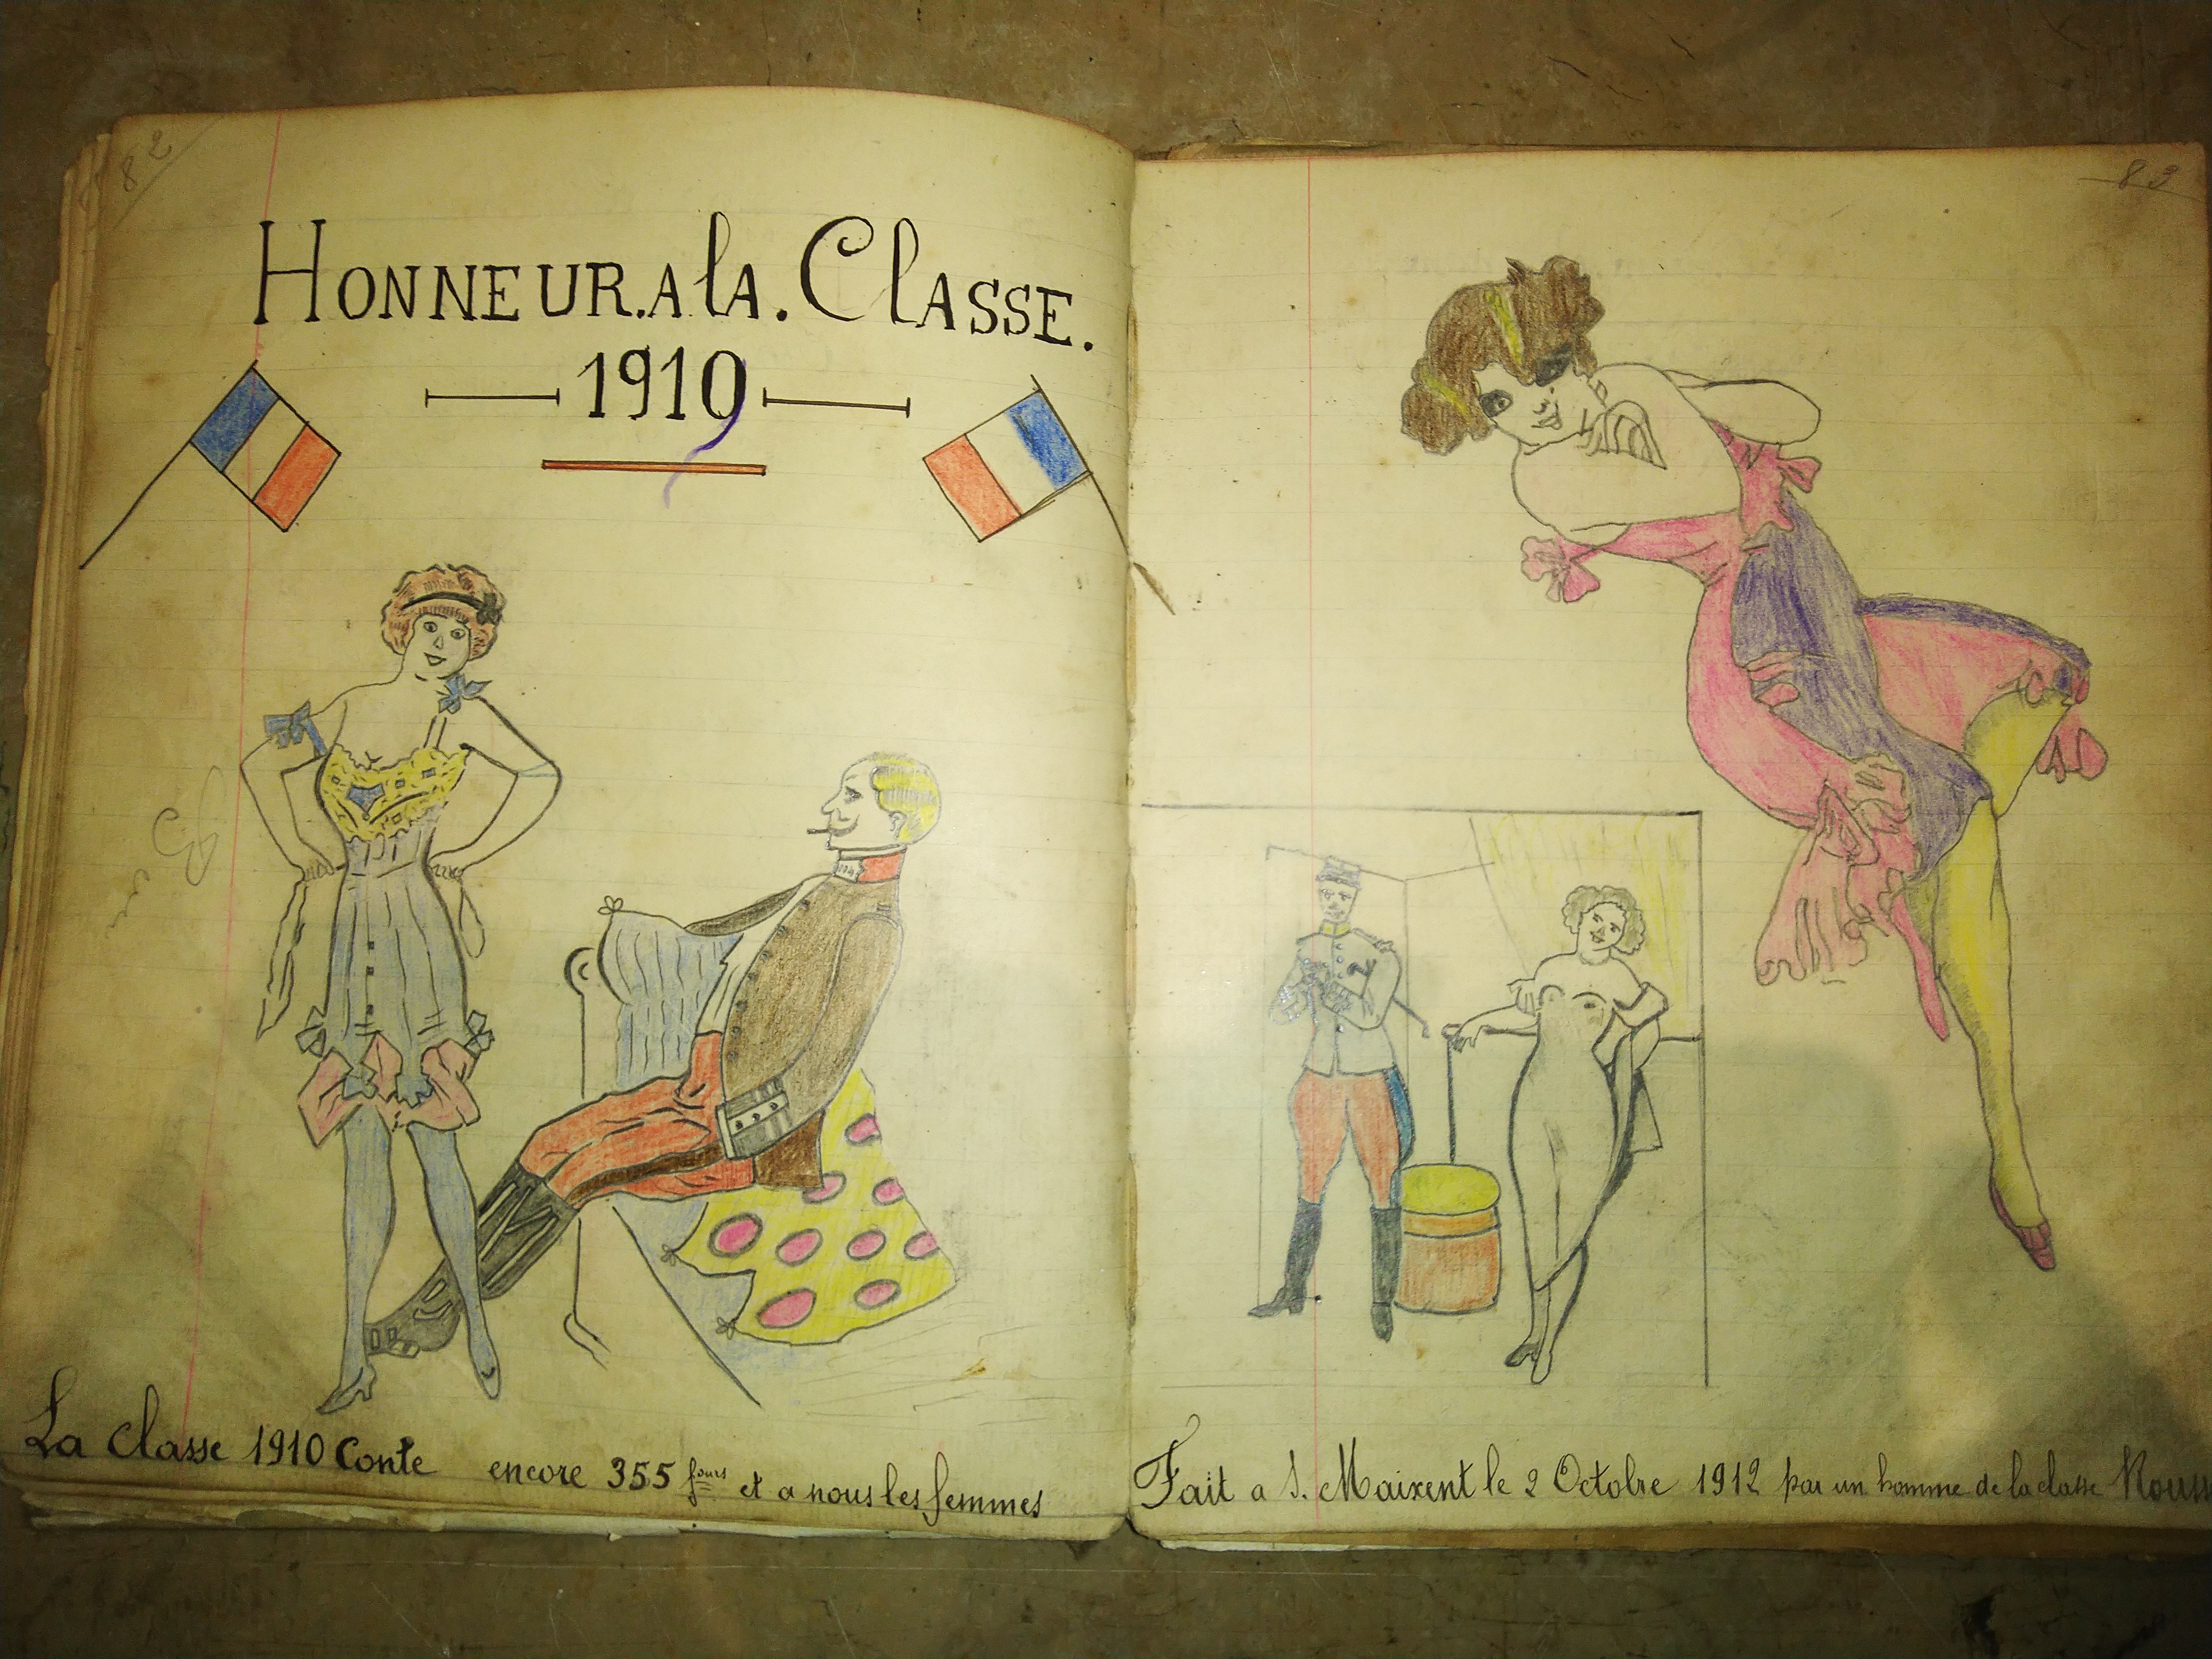 82
HONNEUR.A lA. ClASSE.
1910
La Classe 1910 Conte encore 355 jours et a nous les femmes
83
Fait a S. Maixent le 2 Octobre 1912 par un homme de la classe